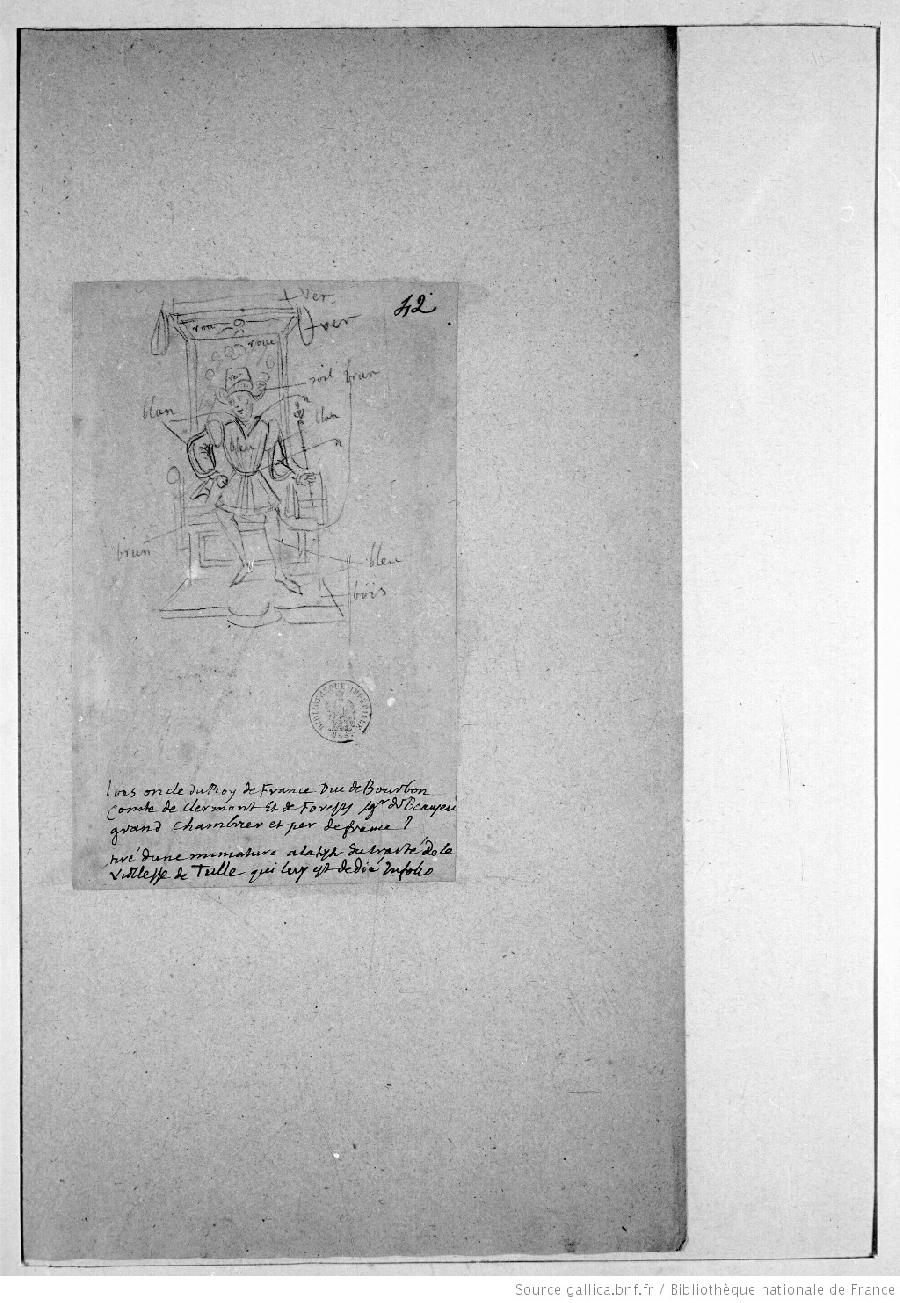 42
ver
ver
rou
rouge
bran
blan
blan
bleu
brun
bleu
bois
BIBLIOTHEQUE IMPERIALE
Loys oncle du Roy de France Duc de Bourbon
Comte de Clermont Et de Forestz sgr de Beaujeu
grand Chambrer et per de france
tiré dune miniature a la teste du traité de la
Vieillesse de Tulle qui luy est dedié Infolio
Source gallica.bnf.fr / Bibliothèque nationale de France